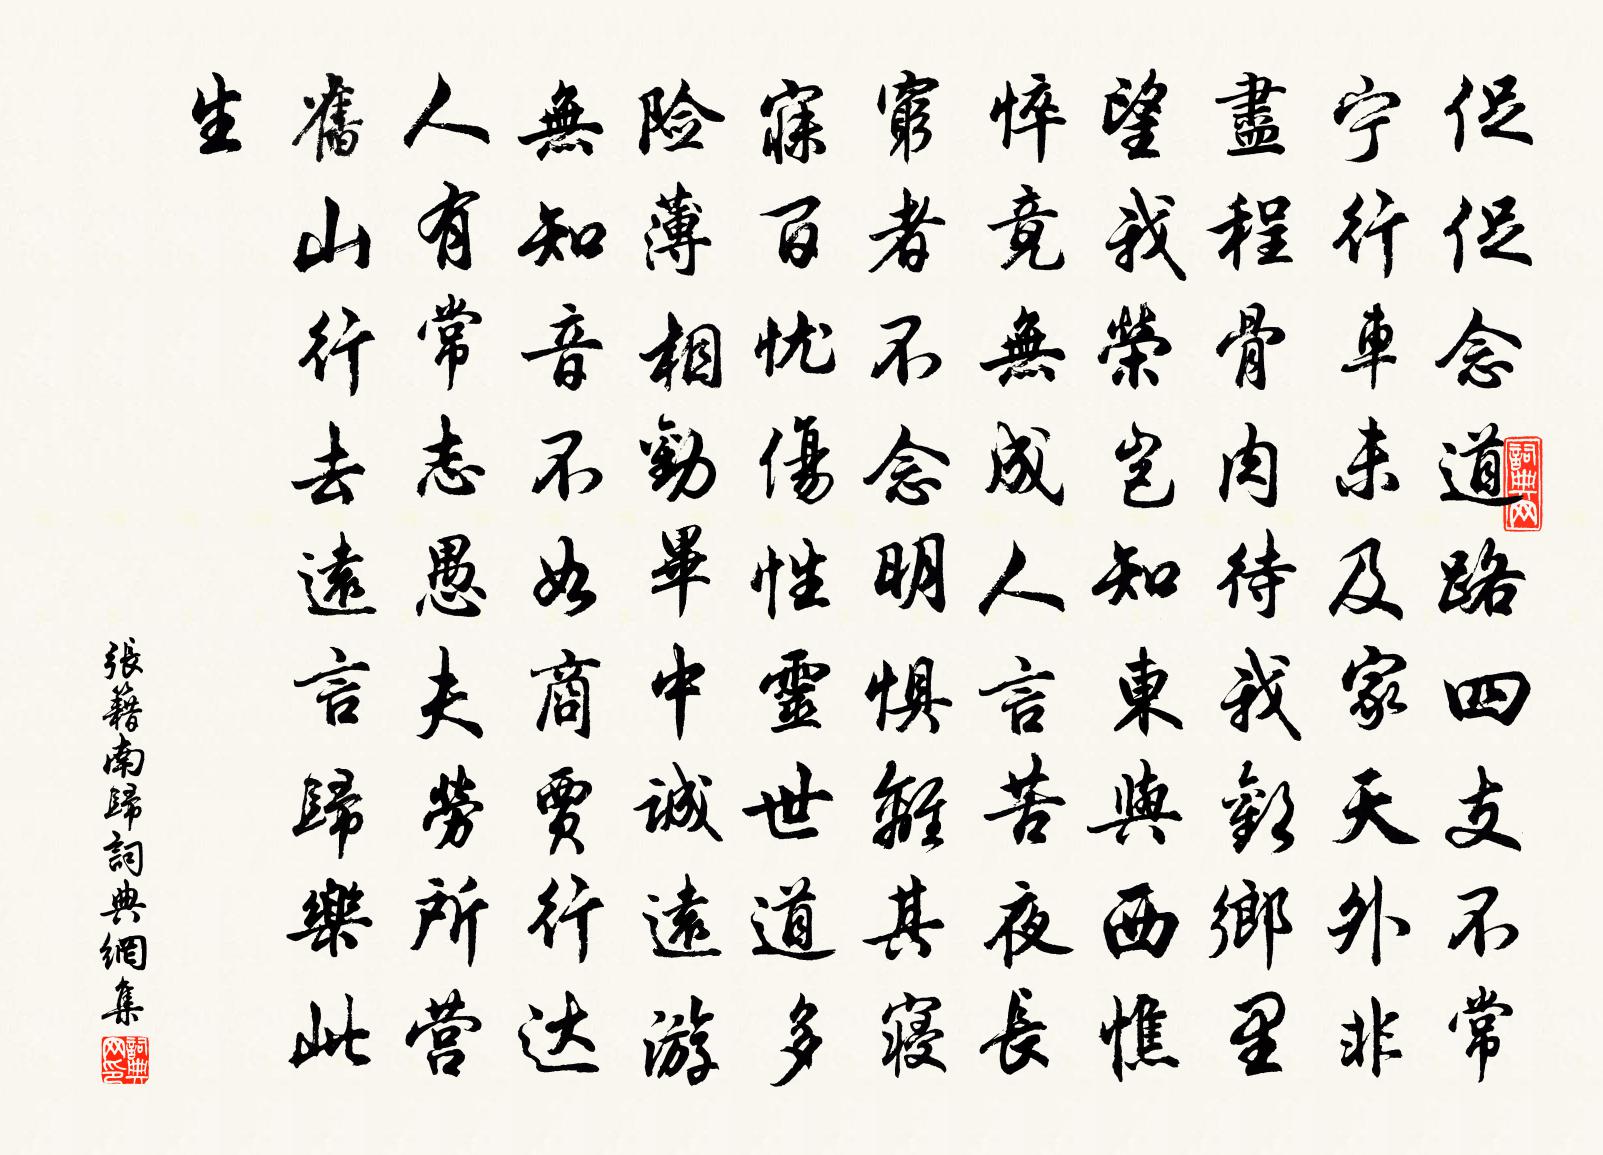 促促念道路四支不常
宁行車未及家天外非
盡程骨肉待我歡鄉里
望我榮岂知東與西憔
悴竟無成人言苦夜長
窮者不念明惧離其寝
寐百忧傷性靈世道多
险薄相勸畢中誠遠游
無知音不如商贾行达
人有常志愚夫勞所营
舊山行去遠言歸樂此
生
張籍南歸詞典網集
詞典网
詞典网印